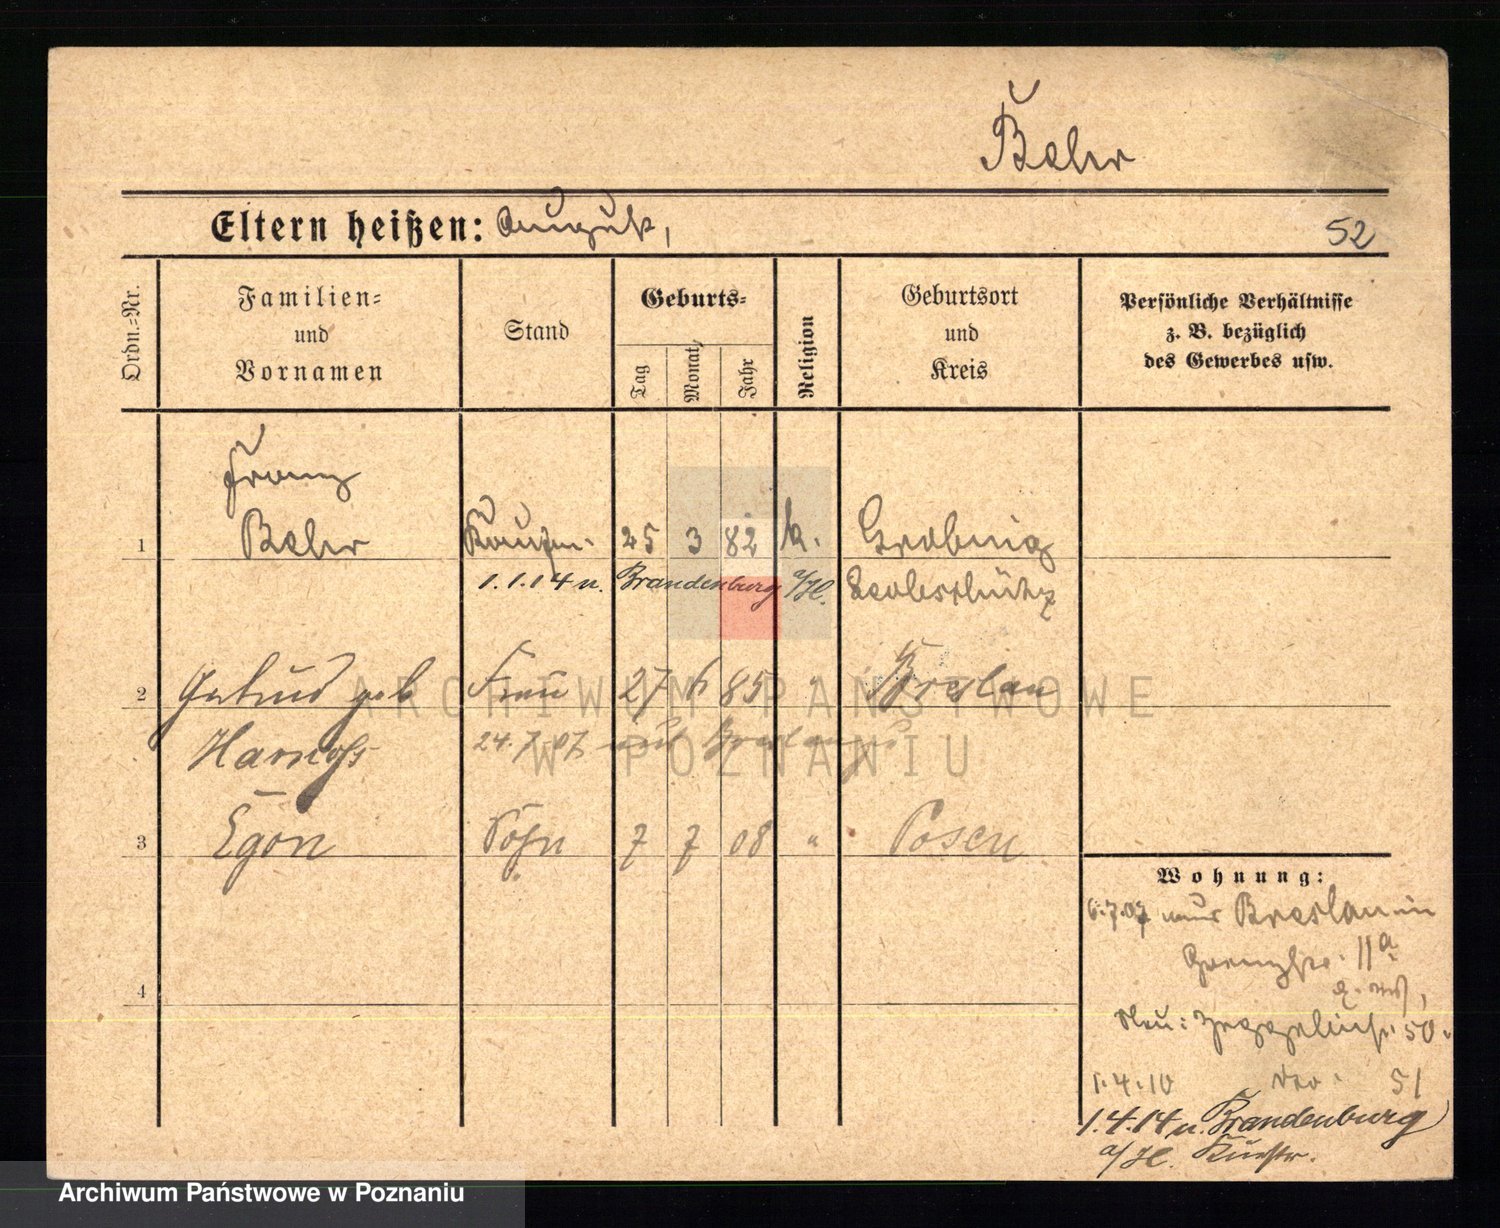 Behr
Eltern heißen: August,
52
Ordn.-Nr.
Familien-
und
Vornamen
Stand
Geburts-
Tag
Monat
Jahr
Religion
Geburtsort
und
Kreis
Persönliche Verhältnisse
z. B. bezüglich
des Gewerbes usw.
Franz
1 Behr Kaufm. 25 3 82 k. Grobnig
1.1.14 n. Brandenburg a/H. Leobschütz
2 Gertrud geb Frau 27 6 85 " Breslau
24.7.07 Breslau
3 Egon Sohn 7 7 08 " Posen
Wohnung:
6.7.07 Breslau
11a
4
Neu: 50.
1.4.10 51
1.4.14 n. Brandenburg
a/H.
ARCHIWUM PAŃSTWOWE
W POZNANIU
Archiwum Państwowe w Poznaniu